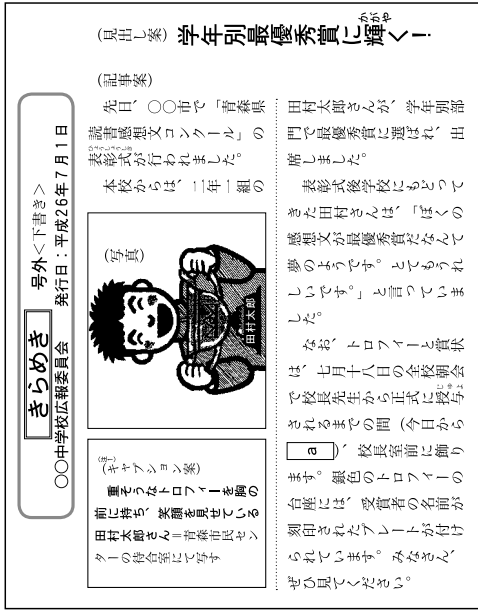 きらめき 号外<下書き>
○○中学校広報委員会 発行日：平成26年7月1日
（見出し案） 学年別最優秀賞に輝く！
かがや
（記事案）
先日、○○市で「青森県
読書感想文コンクール」の
表彰式が行われました。
ひょうしょうしき
本校からは、二年一組の
田村太郎さんが、学年別部
門で最優秀賞に選ばれ、出
席しました。
表彰式後学校にもどって
きた田村さんは、「ぼくの
感想文が最優秀賞だなんて
夢のようです。とてもうれ
しいです。」と言っていま
した。
なお、トロフィーと賞状
は、七月十八日の全校朝会
で校長先生から正式に授与
じゅよ
されるまでの間（今日から
a ）、校長室前に飾り
ます。銀色のトロフィーの
台座には、受賞者の名前が
刻印されたプレートが付け
られています。みなさん、
ぜひ見てください。
（写真）
田村太郎
（注1）
（キャプション案）
重そうなトロフィーを胸の
前に持ち、笑顔を見せている
田村太郎さん＝青森市民セン
ターの待合室にて写す